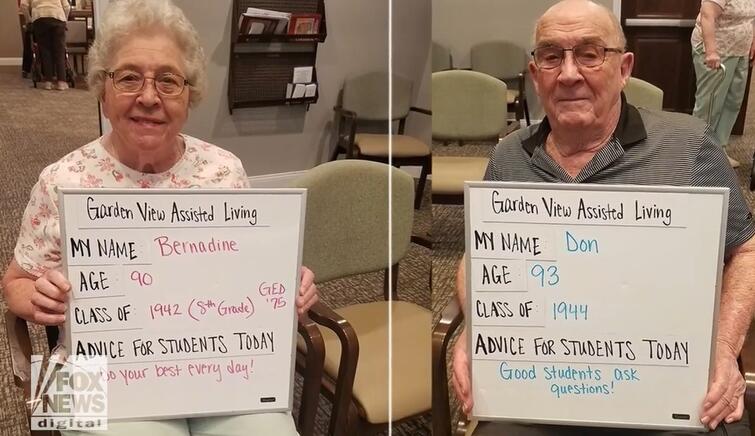 Garden View Assisted Living
MY NAME: Bernadine
AGE: 90
CLASS OF: 1942 (8th Grade) GED '75
ADVICE FOR STUDENTS TODAY
Do your best every day!
Garden View Assisted Living
MY NAME: Don
AGE: 93
CLASS OF: 1944
ADVICE FOR STUDENTS TODAY
Good students ask
questions!
FOX
NEWS
digital